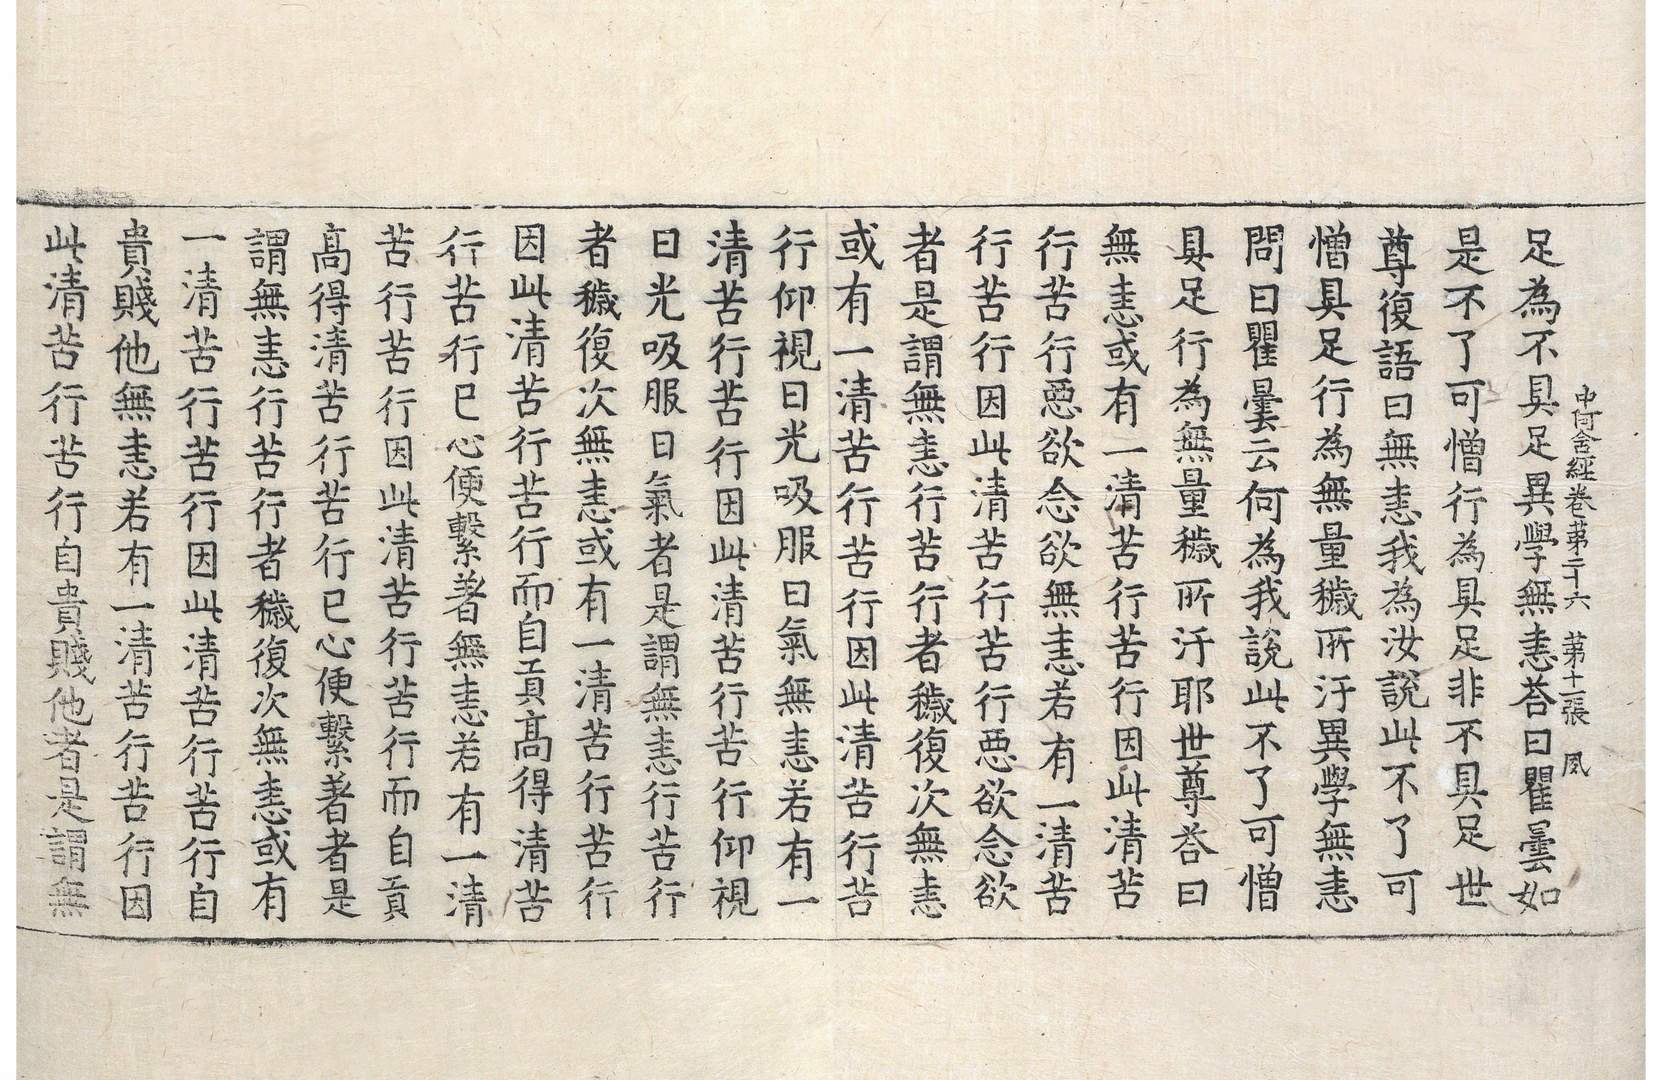 中阿含經卷第二十六　第十一張　風
足為不具足異學無恚荅曰瞿曇如
是不了可憎行為具足非不具足世
尊復語曰無恚我為汝說此不了可
憎具足行為無量穢所汙異學無恚
問曰瞿曇云何為我說此不了可憎
具足行為無量穢所汙耶世尊荅曰
無恚或有一清苦行苦行因此清苦
行苦行惡欲念欲無恚若有一清苦
行苦行因此清苦行苦行惡欲念欲
者是謂無恚行苦行者穢復次無恚
或有一清苦行苦行因此清苦行苦
行仰視日光吸服日氣無恚若有一
清苦行苦行因此清苦行苦行仰視
日光吸服日氣者是謂無恚行苦行
者穢復次無恚或有一清苦行苦行
因此清苦行苦行而自貢高得清苦
行苦行已心便繫著無恚若有一清
苦行苦行因此清苦行苦行而自貢
高得清苦行苦行已心便繫著者是
謂無恚行苦行者穢復次無恚或有
一清苦行苦行因此清苦行苦行自
貴賤他無恚若有一清苦行苦行因
此清苦行苦行自貴賤他者是謂無